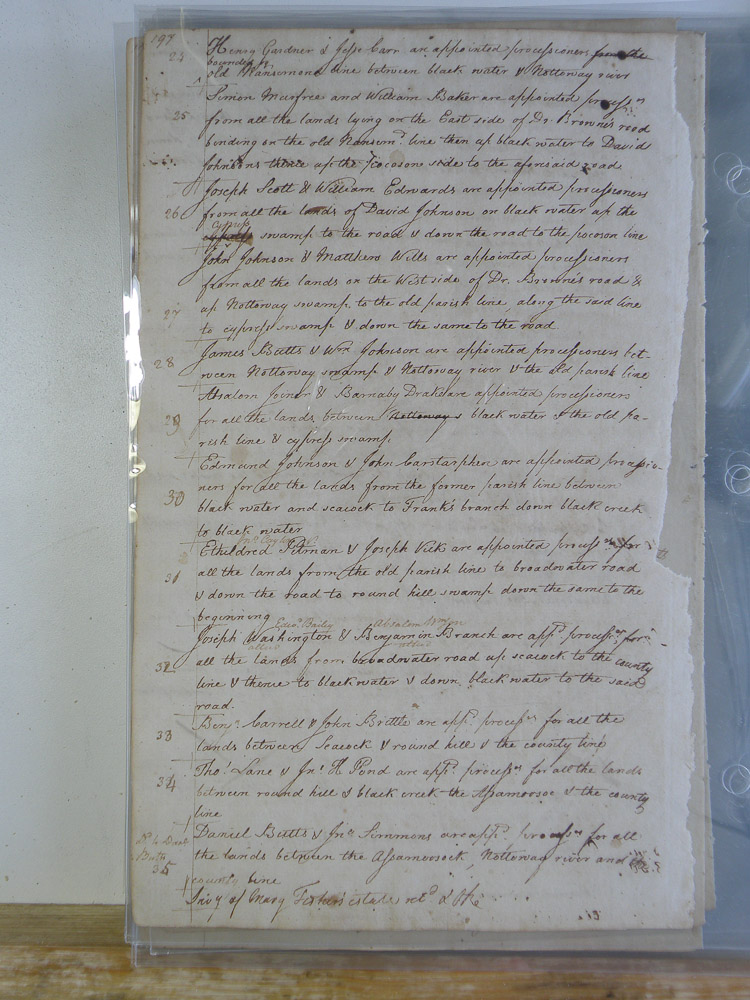 197
24 Henry Gardner & Jesse Carr are appointed processioners from the
bounded by
old Nansemond line between black water & Nottoway river
25 Simon Murfree and William Baker are appointed process.rs
from all the lands lying on the East side of Dr. Browne's road
binding on the old Nansem.d line then up black water to David
Johnsons thence up the Pocoson side to the aforesaid road
26 Joseph Scott & William Edwards are appointed processioners
from all the lands of David Johnson on black water up the
cypress
swamp to the road & down the road to the pocoson line
John Johnson & Matthew Wills are appointed processioners
from all the lands on the West side of Dr. Browne's road &
27 up Nottoway swamp to the old parish line, along the said line
to cypress swamp & down the same to the road
28 James Butts & Wm Johnson are appointed processioners bet-
ween Nottoway swamp & Nottoway river & the old parish line
Absalom Joiner & Barnaby Drake are appointed processioners
29 for all the lands between Nottoway & black water & the old pa-
rish line & cypress swamp
Edmund Johnson & John Carstarphen are appointed processio-
30 ners for all the lands from the former parish line between
black water and seacock to Frank's branch down black creek
to black water
Etheldred Pitman & Joseph Vick are appointed process.rs for
31 all the lands from the old parish line to broadwater road
& down the road to round hill swamp down the same to the
beginning
Edw.d Bailey Absalom
Joseph Washington & Benjamin Branch are app.d process.rs for
32 all the lands from broadwater road up seacock to the county
line & thence to blackwater & down black water to the said
road.
33 Benj.n Carrell & John Brittle are app.d process.rs for all the
lands between Seacock & round hill & the county line
34 Tho.s Lane & Jn.o H Pond are app.d process.rs for all the lands
between round hill & black creek the Assamoosoc & the county
line
Daniel Butts & Jn.o Simmons are app.d process.rs for all
35 the lands between the Assamoosock, Nottoway river and the
county line
Inv.y of Mary Fisher's estate ret.d & OR